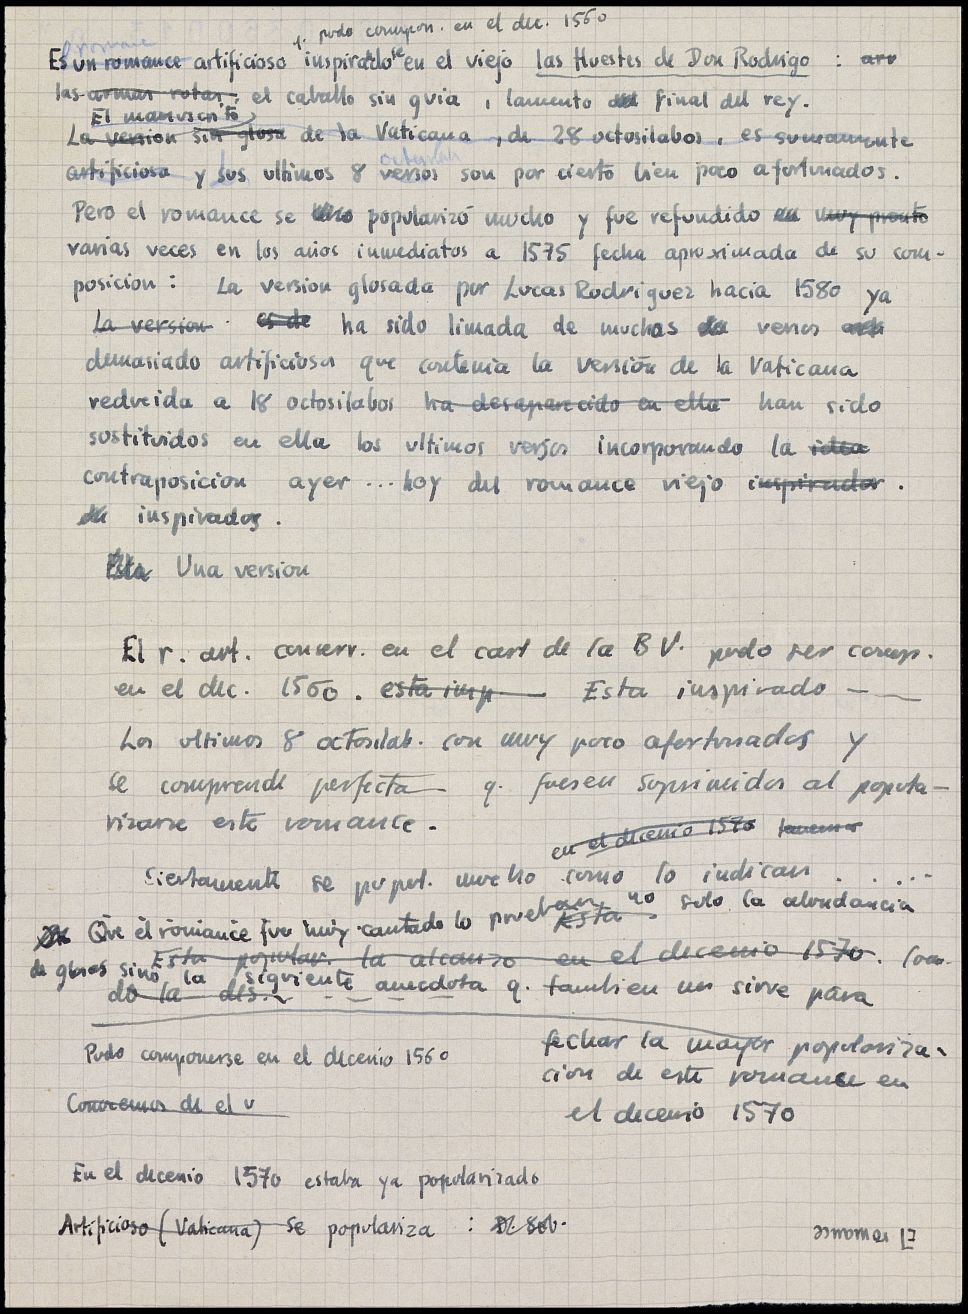 q. pudo compon. en el dec. 1560
romance
Es un romance artificioso inspiradose en el viejo las Huestes de Don Rodrigo : arr
las armas rotas, el caballo sin guia, lamento del final del rey.
El manuscrito
La version sin glosa de la Vaticana, de 28 octosilabos, es sumamente
octosilab
artificiosa y sus ultimos 8 versos son por cierto bien poco afortunados.
Pero el romance se popularizó mucho y fue refundido en muy pronto
varias veces en los años inmediatos a 1575 fecha aproximada de su com-
posicion : La version glosada por Lucas Rodriguez hacia 1580 ya
La version es de ha sido limada de muchas versos
demasiado artificiosos que contenia la versión de la Vaticana
reducida a 18 octosilabos ha desaparecido en ella han sido
sustituidos en ella los ultimos versos incorporando la idea
contraposicion ayer ... hoy del romance viejo inspirador.
inspirador.
Esta Una version
El r. art. conserv. en el cart de la B V. pudo ser comp.
en el dec. 1560. esta insp Esta inspirado —
Los ultimos 8 octosilab. con muy poco afortunados y
se comprende perfecta— q. fuesen suprimidos al popula-
rizarse este romance.
en el decenio 1570
Ciertamente se popul. mucho como lo indican . . ...
Que el romance fue muy cantado lo prueban Esta no solo la abundancia
Esta popular. la alcanzo en el decenio 1570.
de glosas sino la siguiente anecdota q. tambien nos sirve para
do la des.
fechar la mayor populariza-
cion de este romance en
el decenio 1570
Pudo componerse en el decenio 1560
Conocemos de el v
En el decenio 1570 estaba ya popularizado
Artificioso (Vaticana) se populariza :
El romance